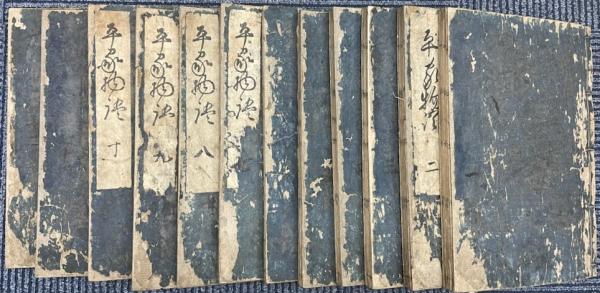 平家物語 二
平家物語
平家物語 八
平家物語 九
平家物語 十